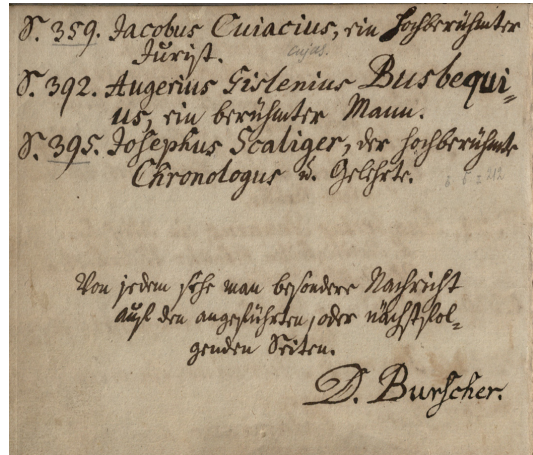 S. 359. Jacobus Cuiacius, ein hochberühmter
Jurist.
cujas.
S. 392. Augerius Gislenius Busbequi-
us, ein berühmter Mann.
S. 395. Josephus Scaliger, der hochberühmte
Chronologus u. Gelehrte.
Von jedem sehe man besondere Nachricht
auf den angeführten, oder nächstfol-
genden Seiten.
D. Burscher.